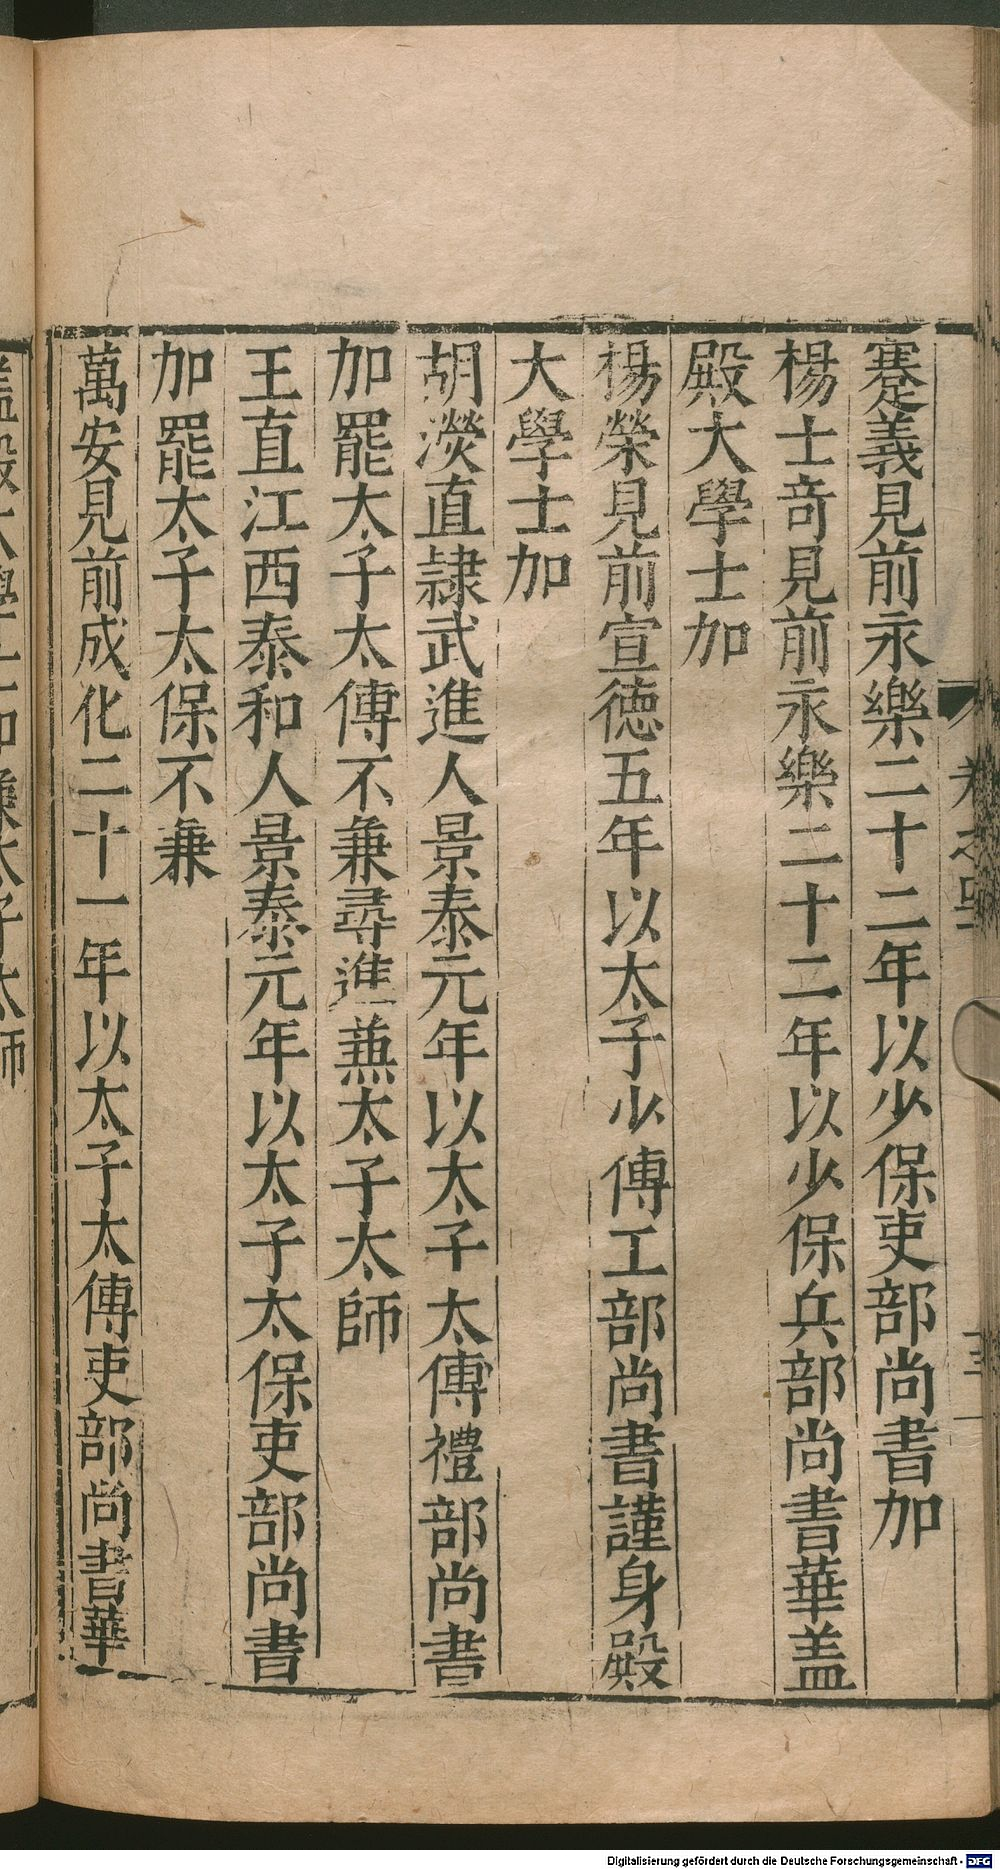 蹇義見前永樂二十二年以少保吏部尚書加
楊士奇見前永樂二十二年以少保兵部尚書華盖
殿大學士加
楊榮見前宣徳五年以太子少傅工部尚書謹身殿
大學士加
胡濙直隷武進人景泰元年以太子太傅禮部尚書
加罷太子太傅不兼尋進兼太子太師
王直江西泰和人景泰元年以太子太保吏部尚書
加罷太子太保不兼
萬安見前成化二十一年以太子太傅吏部尚書華
盖殿大學士加兼太子太師
卷之四
Digitalisierung gefördert durch die Deutsche Forschungsgemeinschaft - DFG